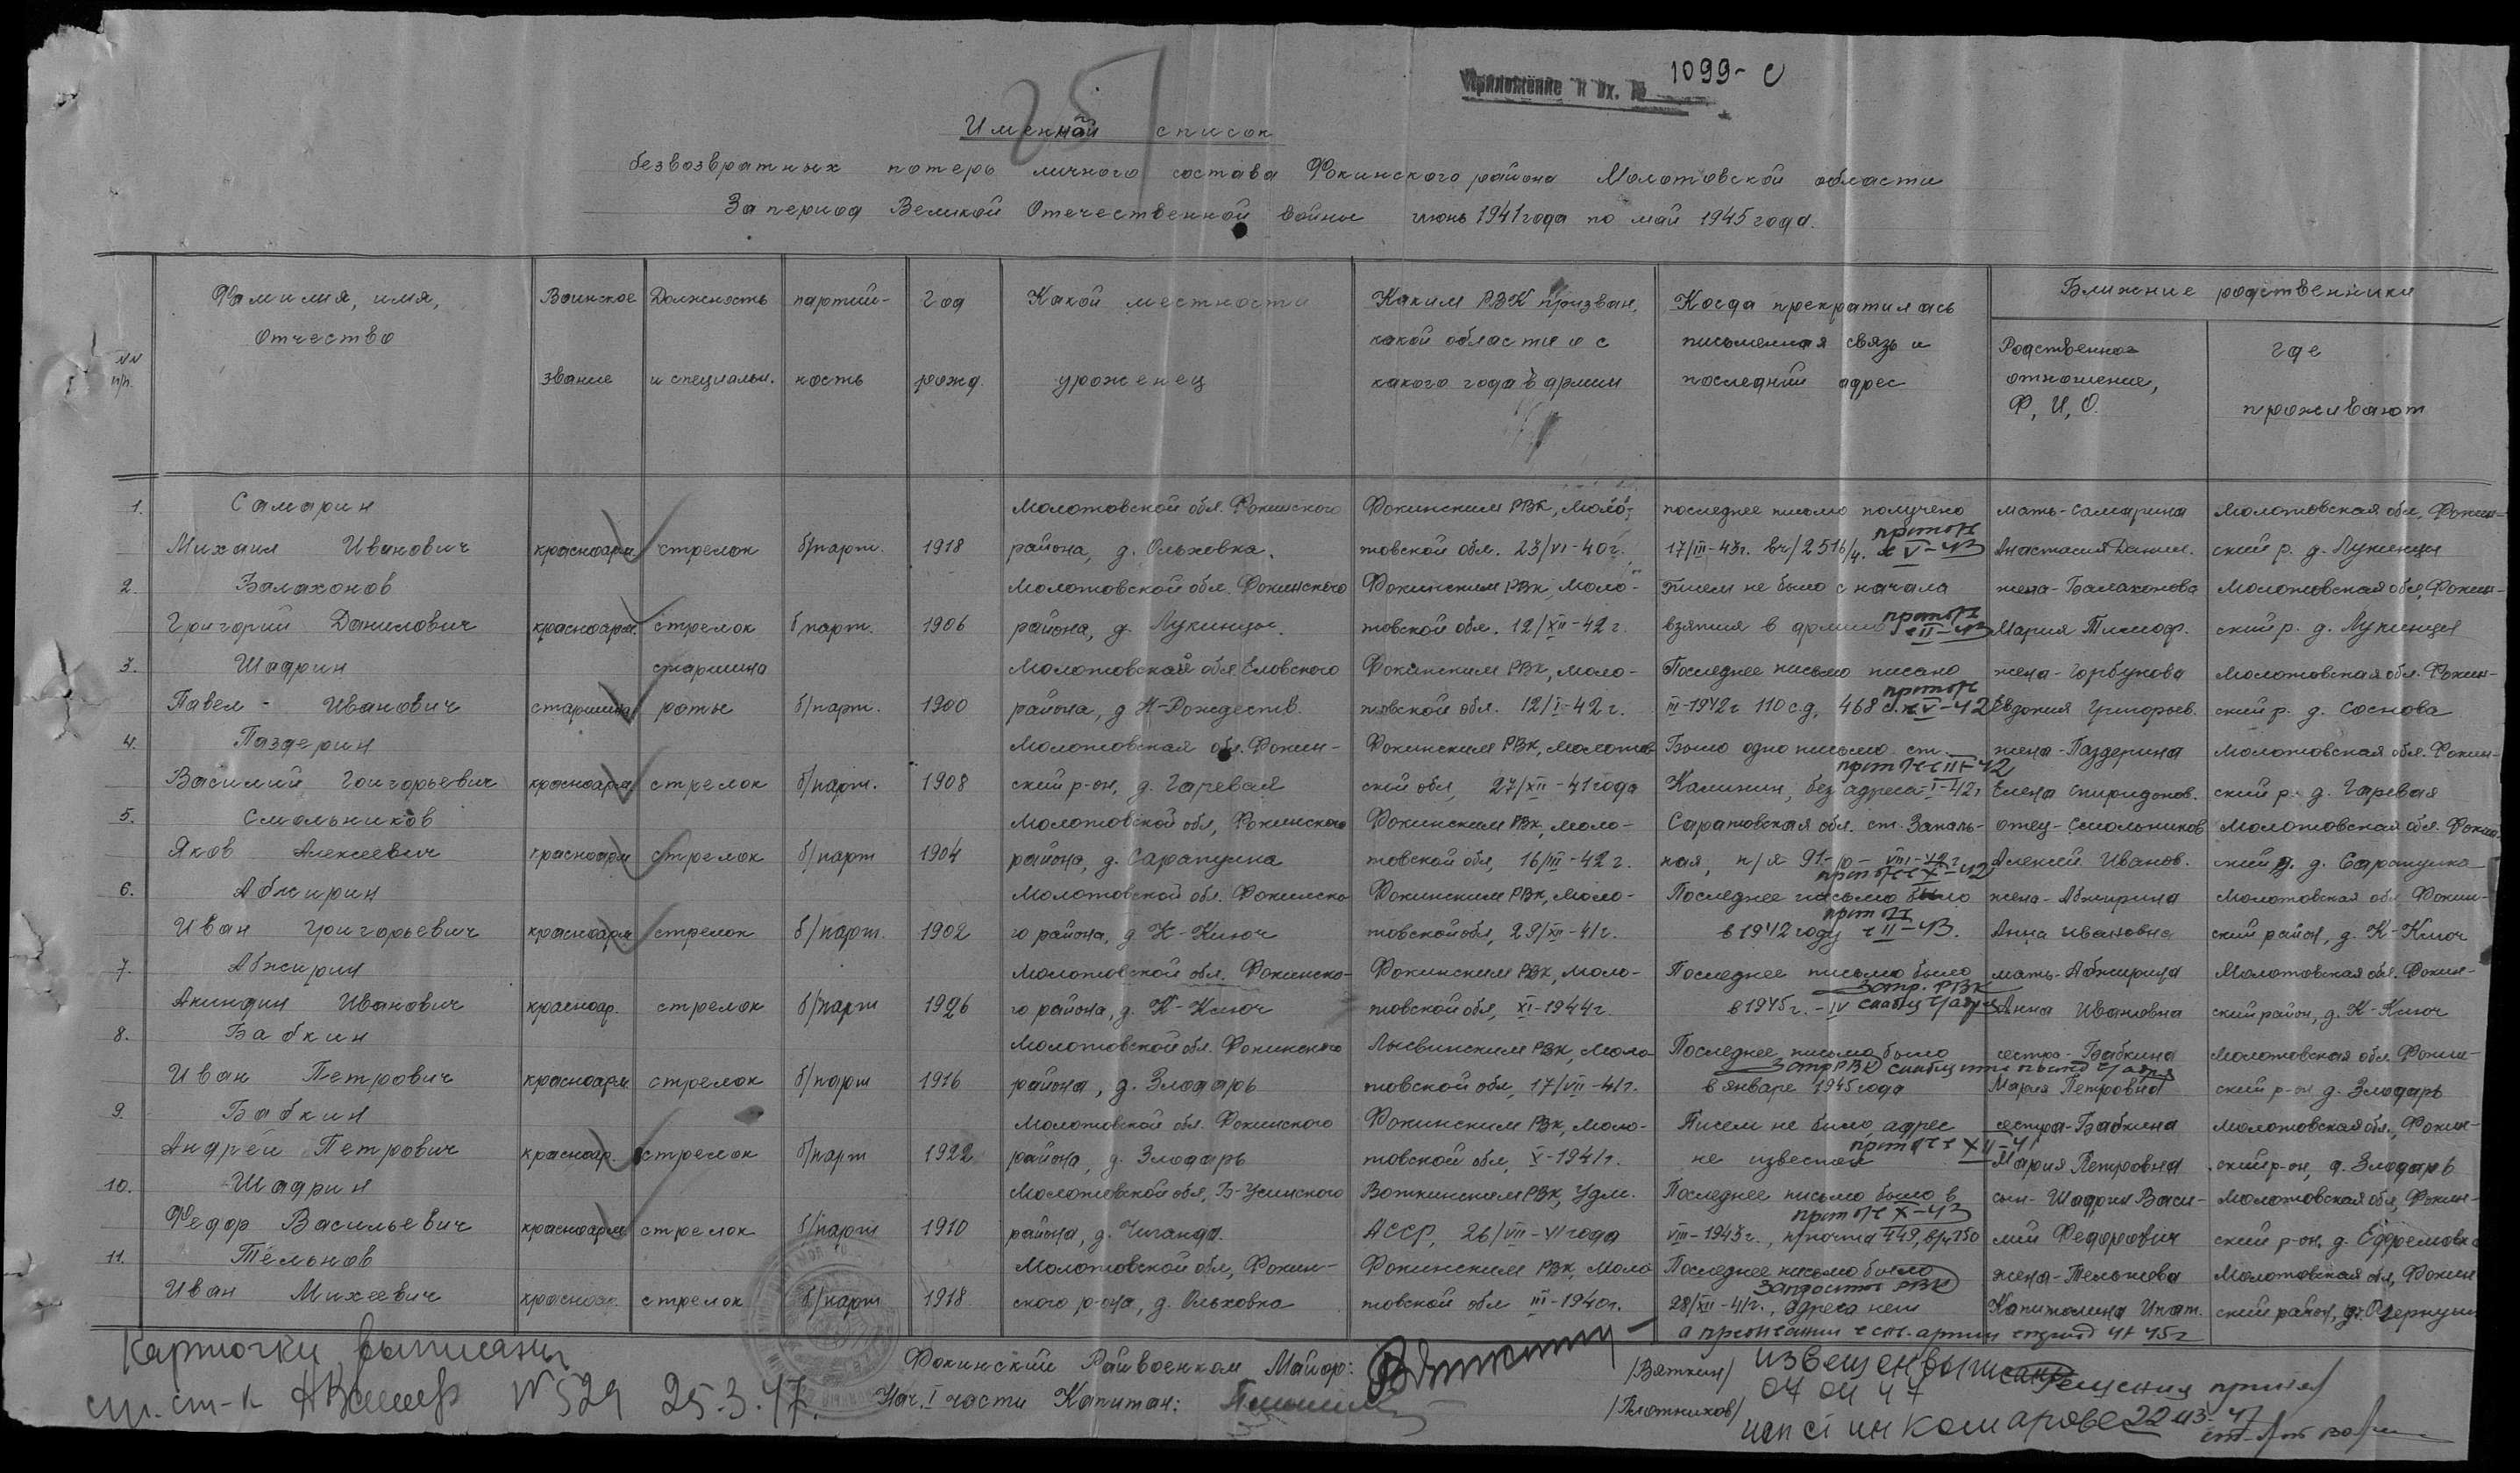 Приложение к вх. № 1099-с
25
Именной список
безвозвратных потерь личного состава Фокинского района Молотовской области
За период Великой Отечественной войны июнь 1941 года по май 1945 года.
№№ п/п.
Фамилия, имя, отчество
Воинское звание
Должность и специальн.
партийность
Год рожд.
Какой местности уроженец
Каким РВК призван, какой области и с какого года в армии
Когда прекратилась письменная связь и последний адрес
Ближние родственники
Родственное отношение, Ф, И, О.
где проживают
1. Самарин Молотовской обл. Фокинского Фокинским РВК, Моло- последнее письмо получено мать-Самарина Молотовская обл, Фокин-
Михаил Иванович красноарм. стрелок б/парт. 1918 района, д. Ольховка. товской обл. 23/VI-40г. 17/III-43г. вч/2516/4. V-43 Анастасия Данил. ский р. д. Лукинцы
2. Балахонов Молотовской обл. Фокинского Фокинским РВК, Моло- Писем не было с начала жена-Балахонова Молотовская обл, Фокин-
Григорий Данилович красноарм. стрелок б/парт. 1906 района, д. Лукинцы. товской обл. 12/XII-42г. взятия в армию II-43 Мария Тимоф. ский р. д. Лукинцы
3. Шадрин старшина Молотовской обл Еловского Фокинским РВК, Моло- Последнее письмо писано жена-Горбунова Молотовская обл. Фокин-
Павел - Иванович старшина роты б/парт. 1900 района, д Н-Рождеств. товской обл. 12/I-42г. III-1942г 110 с.д, 468 V-42 Евдокия Григорьев. ский р. д. Соснова
4. Паздерин Молотовская обл. Фокин- Фокинским РВК, Молотов- Было одно письмо ст. жена-Паздерина Молотовская обл. Фокин-
Василий Григорьевич красноарм. стрелок б/парт. 1908 ский р-он, д. Гаревая ской обл, 27/XII-41 года Калинин, без адреса-I-42г Елена Спиридонов. ский р. д. Гаревая
5. Смольников Молотовской обл, Фокинского Фокинским РВК, Моло- Саратовская обл. ст. отец-Смольников Молотовская обл. Фокин-
Яков Алексеевич красноарм стрелок б/парт 1904 района, д. Сарапулка товской обл, 16/III-42г. п/я 91-10- VIII-42г X-42 Алексей Иванов. ский р. д. Сарапулка
6. Абжирин Молотовской обл. Фокинско Фокинским РВК, Моло- Последнее письмо было жена-Абжирина Молотовская обл Фокин-
Иван Григорьевич красноарм стрелок б/парт. 1902 го района, д. К-Ключ товской обл, 29/XII-41г. в 1942 году II-43. Анна Ивановна ский район, д. К-Ключ
7. Абжирин Молотовской обл. Фокинско- Фокинским РВК, Моло- Последнее письмо было мать-Абжирина Молотовская обл. Фокин-
Акиндин Иванович красноар. стрелок б/парт 1926 го района, д. К-Ключ товской обл, XI-1944г. в 1945г.-IV Анна Ивановна ский район, д. К-Ключ
8. Бабкин Молотовской обл. Фокинского Лысвинским РВК, Моло Последнее письмо было сестра-Бабкина Молотовская обл. Фокин-
Иван Петрович красноарм стрелок б/парт 1916 района, д. Злодарь товской обл, 17/VII-41г. в январе 1945 года Мария Петровна ский р-он д. Злодарь
9. Бабкин Молотовской обл. Фокинского Фокинским РВК, Моло- Писем не было, адрес сестра-Бабкина Молотовская обл., Фокин-
Андрей Петрович красноар. стрелок б/парт 1922 района, д. Злодарь товской обл, V-1941г. не известен XII-41 Мария Петровна ский р-он, д. Злодарь
10. Шадрин Молотовской обл, Б-Усинского Воткинским РВК, Удм. Последнее письмо было в сын-Шадрин Васи- Молотовская обл, Фокин-
Федор Васильевич красноарм стрелок б/парт 1910 района, д. Чиганда. АССР, 26/VII-41 года VIII-1943г., п/почта 449, в/ч 150 X-43 лий Федорович ский р-он, д. Ефремовка
11. Тельнов Молотовской обл, Фокин- Фокинским РВК, Моло Последнее письмо было жена-Тельнова Молотовская обл, Фокин
Иван Михеевич красноар. стрелок б/парт 1918 ского р-она, д. Ольховка товской обл III-1940г. 28/XII-41г., адреса нет Капитолина Ипат. ский район,
Карточки выписаны
№ 529 25.3.47.
Фокинский Райвоенком Майор: /Вяткин/
Нач. I части Капитан: /Плотников/
04 04 47